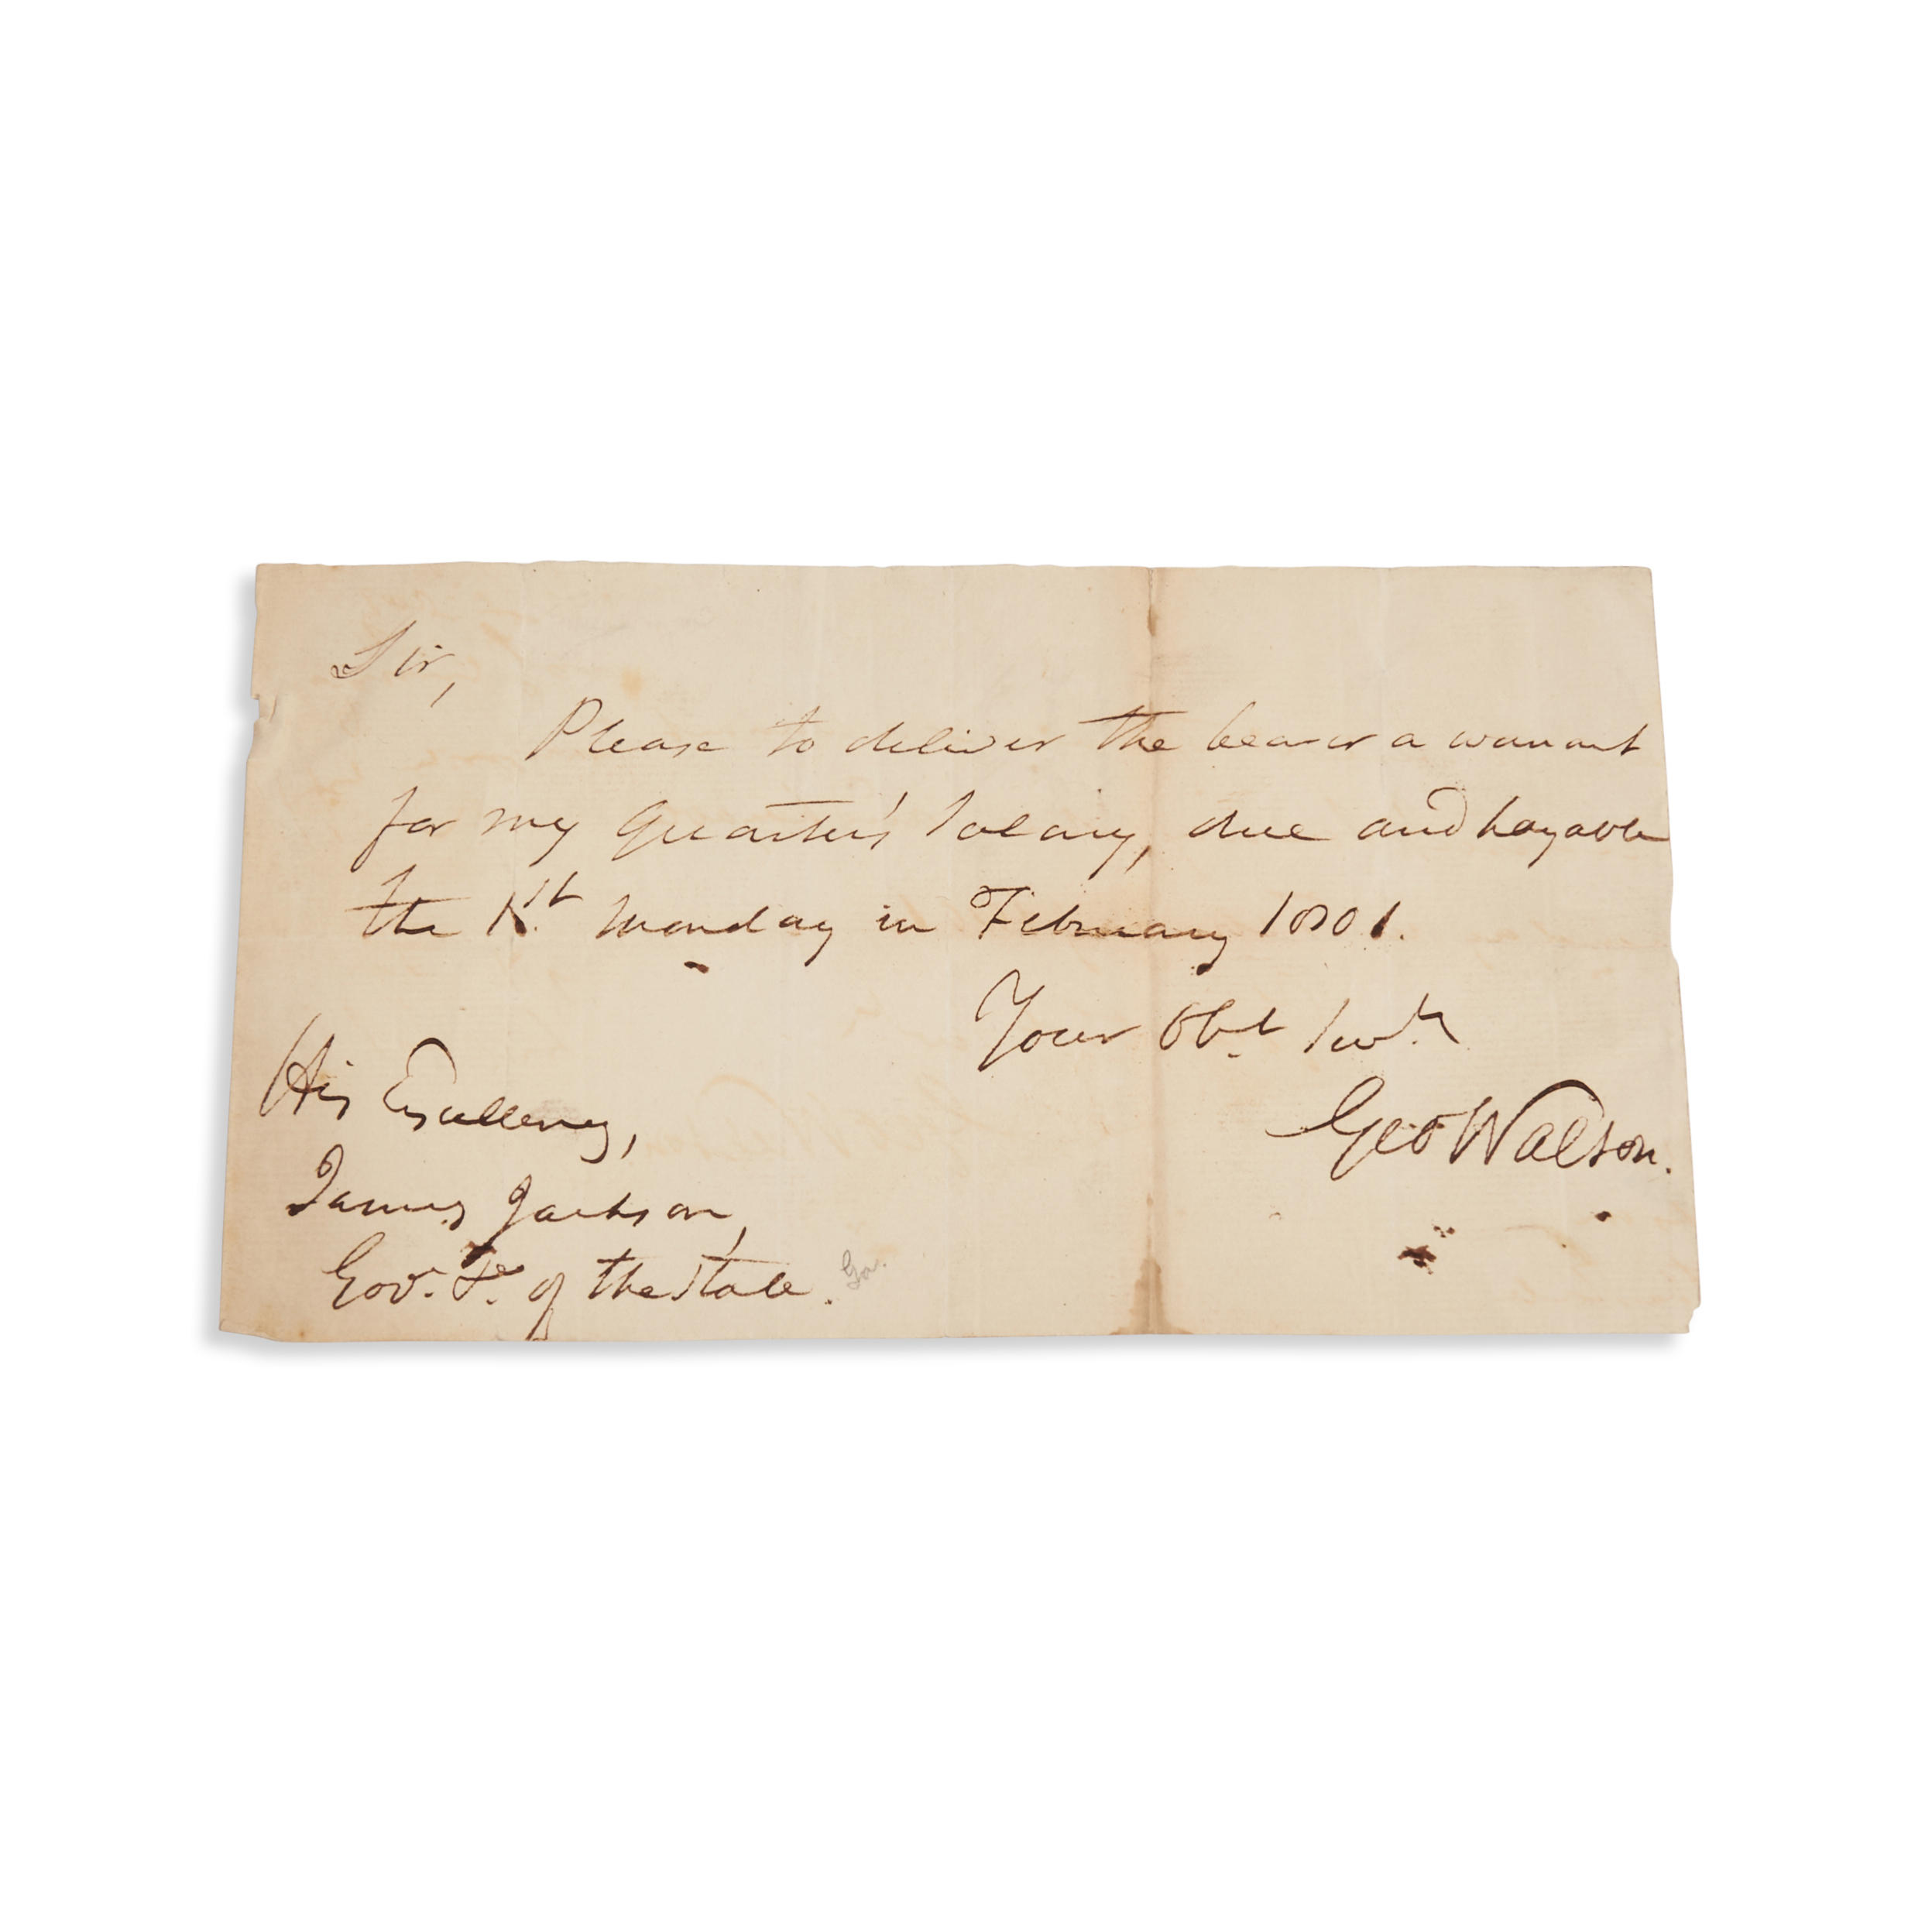 Sir,
Please to deliver the bearer a warrant
for my Quarter's Salary, due and payable
the 1st. Monday in February 1801.
Your Obt. Servt.
Geo Walton.
His Excellency,
James Jackson,
Gov. &c. of the State. Ga.